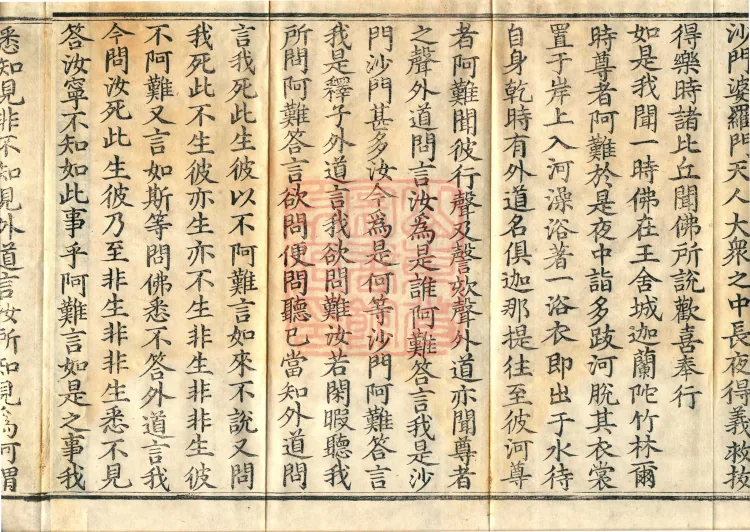 沙門婆羅門天人大衆之中長夜得義救拔
得樂時諸比丘聞佛所說歡喜奉行
如是我聞一時佛在王舍城迦蘭陀竹林爾
時尊者阿難於是夜中詣多跂河脫其衣裳
置于岸上入河澡浴著一浴衣即出于水待
自身乾時有外道名俱迦那提往至彼河尊
者阿難聞彼行聲及謦欬聲外道亦聞尊者
之聲外道問言汝為是誰阿難答言我是沙
門沙門甚多汝今為是何等沙門阿難答言
我是釋子外道言我欲問難汝若閑暇聽我
所問阿難答言欲問便問聽已當知外道問
言我死此生彼以不阿難言如來不說又問
我死此不生彼亦生亦不生非生非非生彼
不阿難又言如斯等問佛悉不答外道言我
今問汝死此生彼乃至非生非非生悉不見
答汝寧不知如此事乎阿難言如是之事我
悉知見非不知見外道言汝所知見為何謂